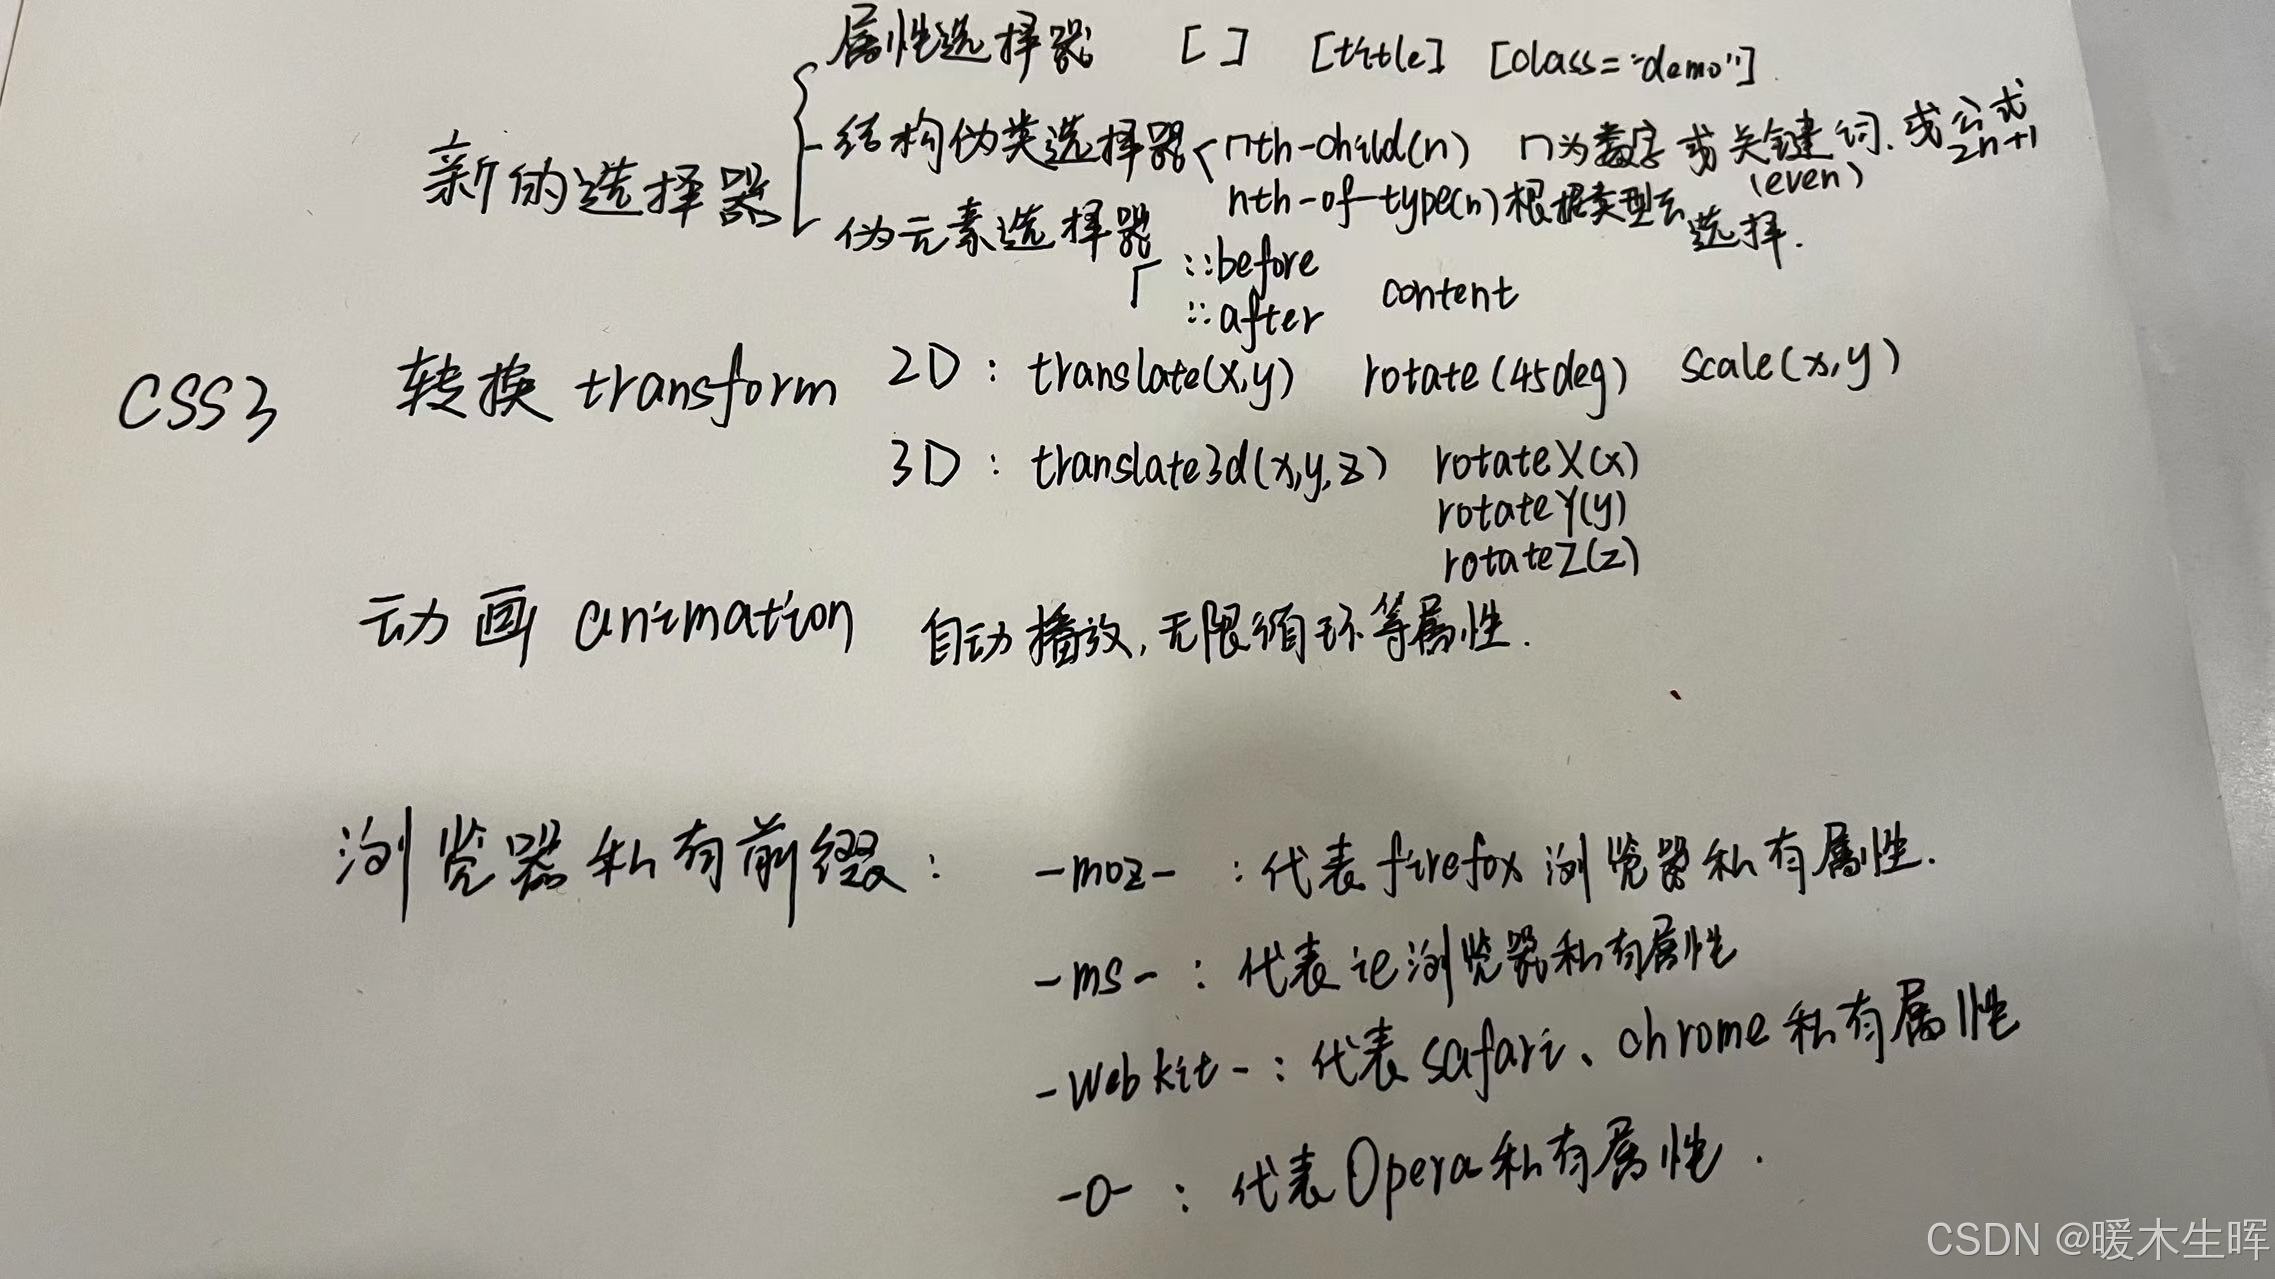 属性选择器 [ ] [title] [class="demo"]
新的选择器
结构伪类选择器 nth-child(n) n为数字或关键词.或公式
(even) 2n+1
nth-of-type(n)根据类型去选择.
伪元素选择器
::before
::after content
CSS3
转换 transform
2D: translate(x,y) rotate(45deg) scale(x,y)
3D: translate3d(x,y,z) rotateX(x)
rotateY(y)
rotateZ(z)
动画 animation 自动播放,无限循环等属性.
浏览器私有前缀: -moz- :代表firefox浏览器私有属性.
-ms- :代表ie浏览器私有属性
-webkit- :代表safari、chrome私有属性
-o- :代表Opera私有属性.
CSDN @暖木生晖